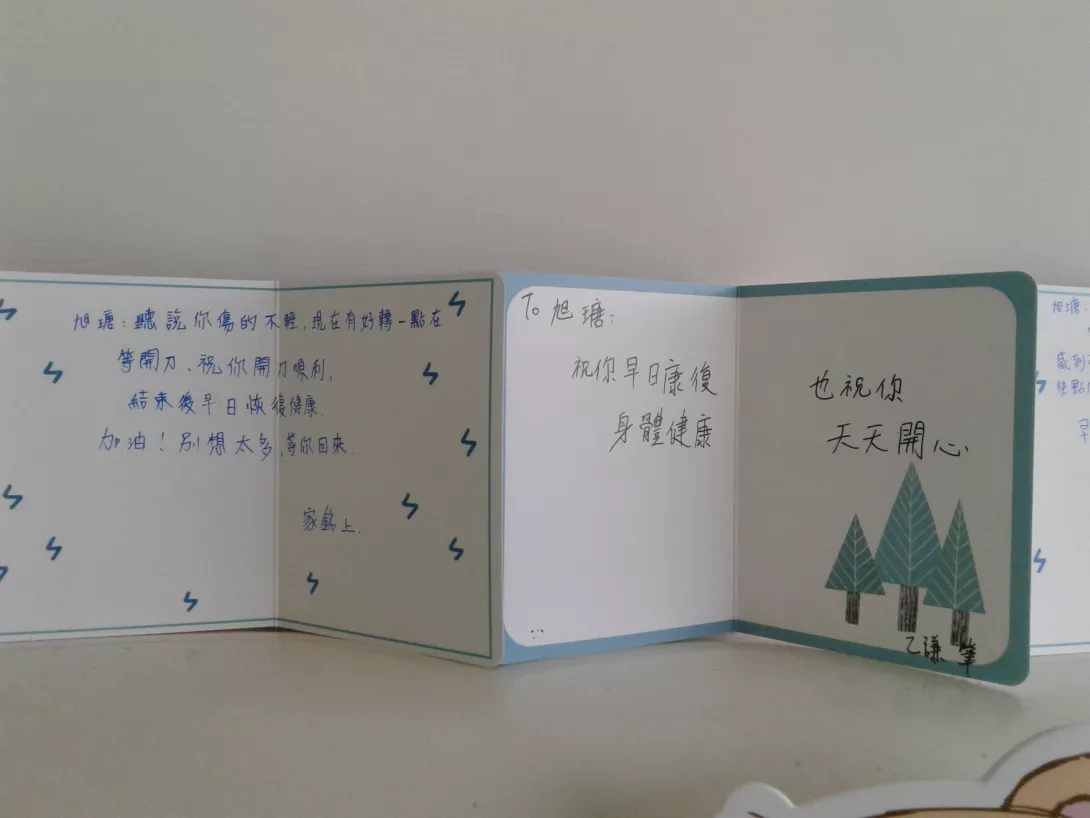 旭瑭：聽說你傷的不輕，現在有好轉一點在
等開刀、祝你開刀順利，
結束後早日恢復健康.
加油！別想太多，等你回來.
家銘上.
To 旭瑭：
祝你早日康復
身體健康
也祝你
天天開心.
乙謙 筆
旭瑭：
感到
快點
早